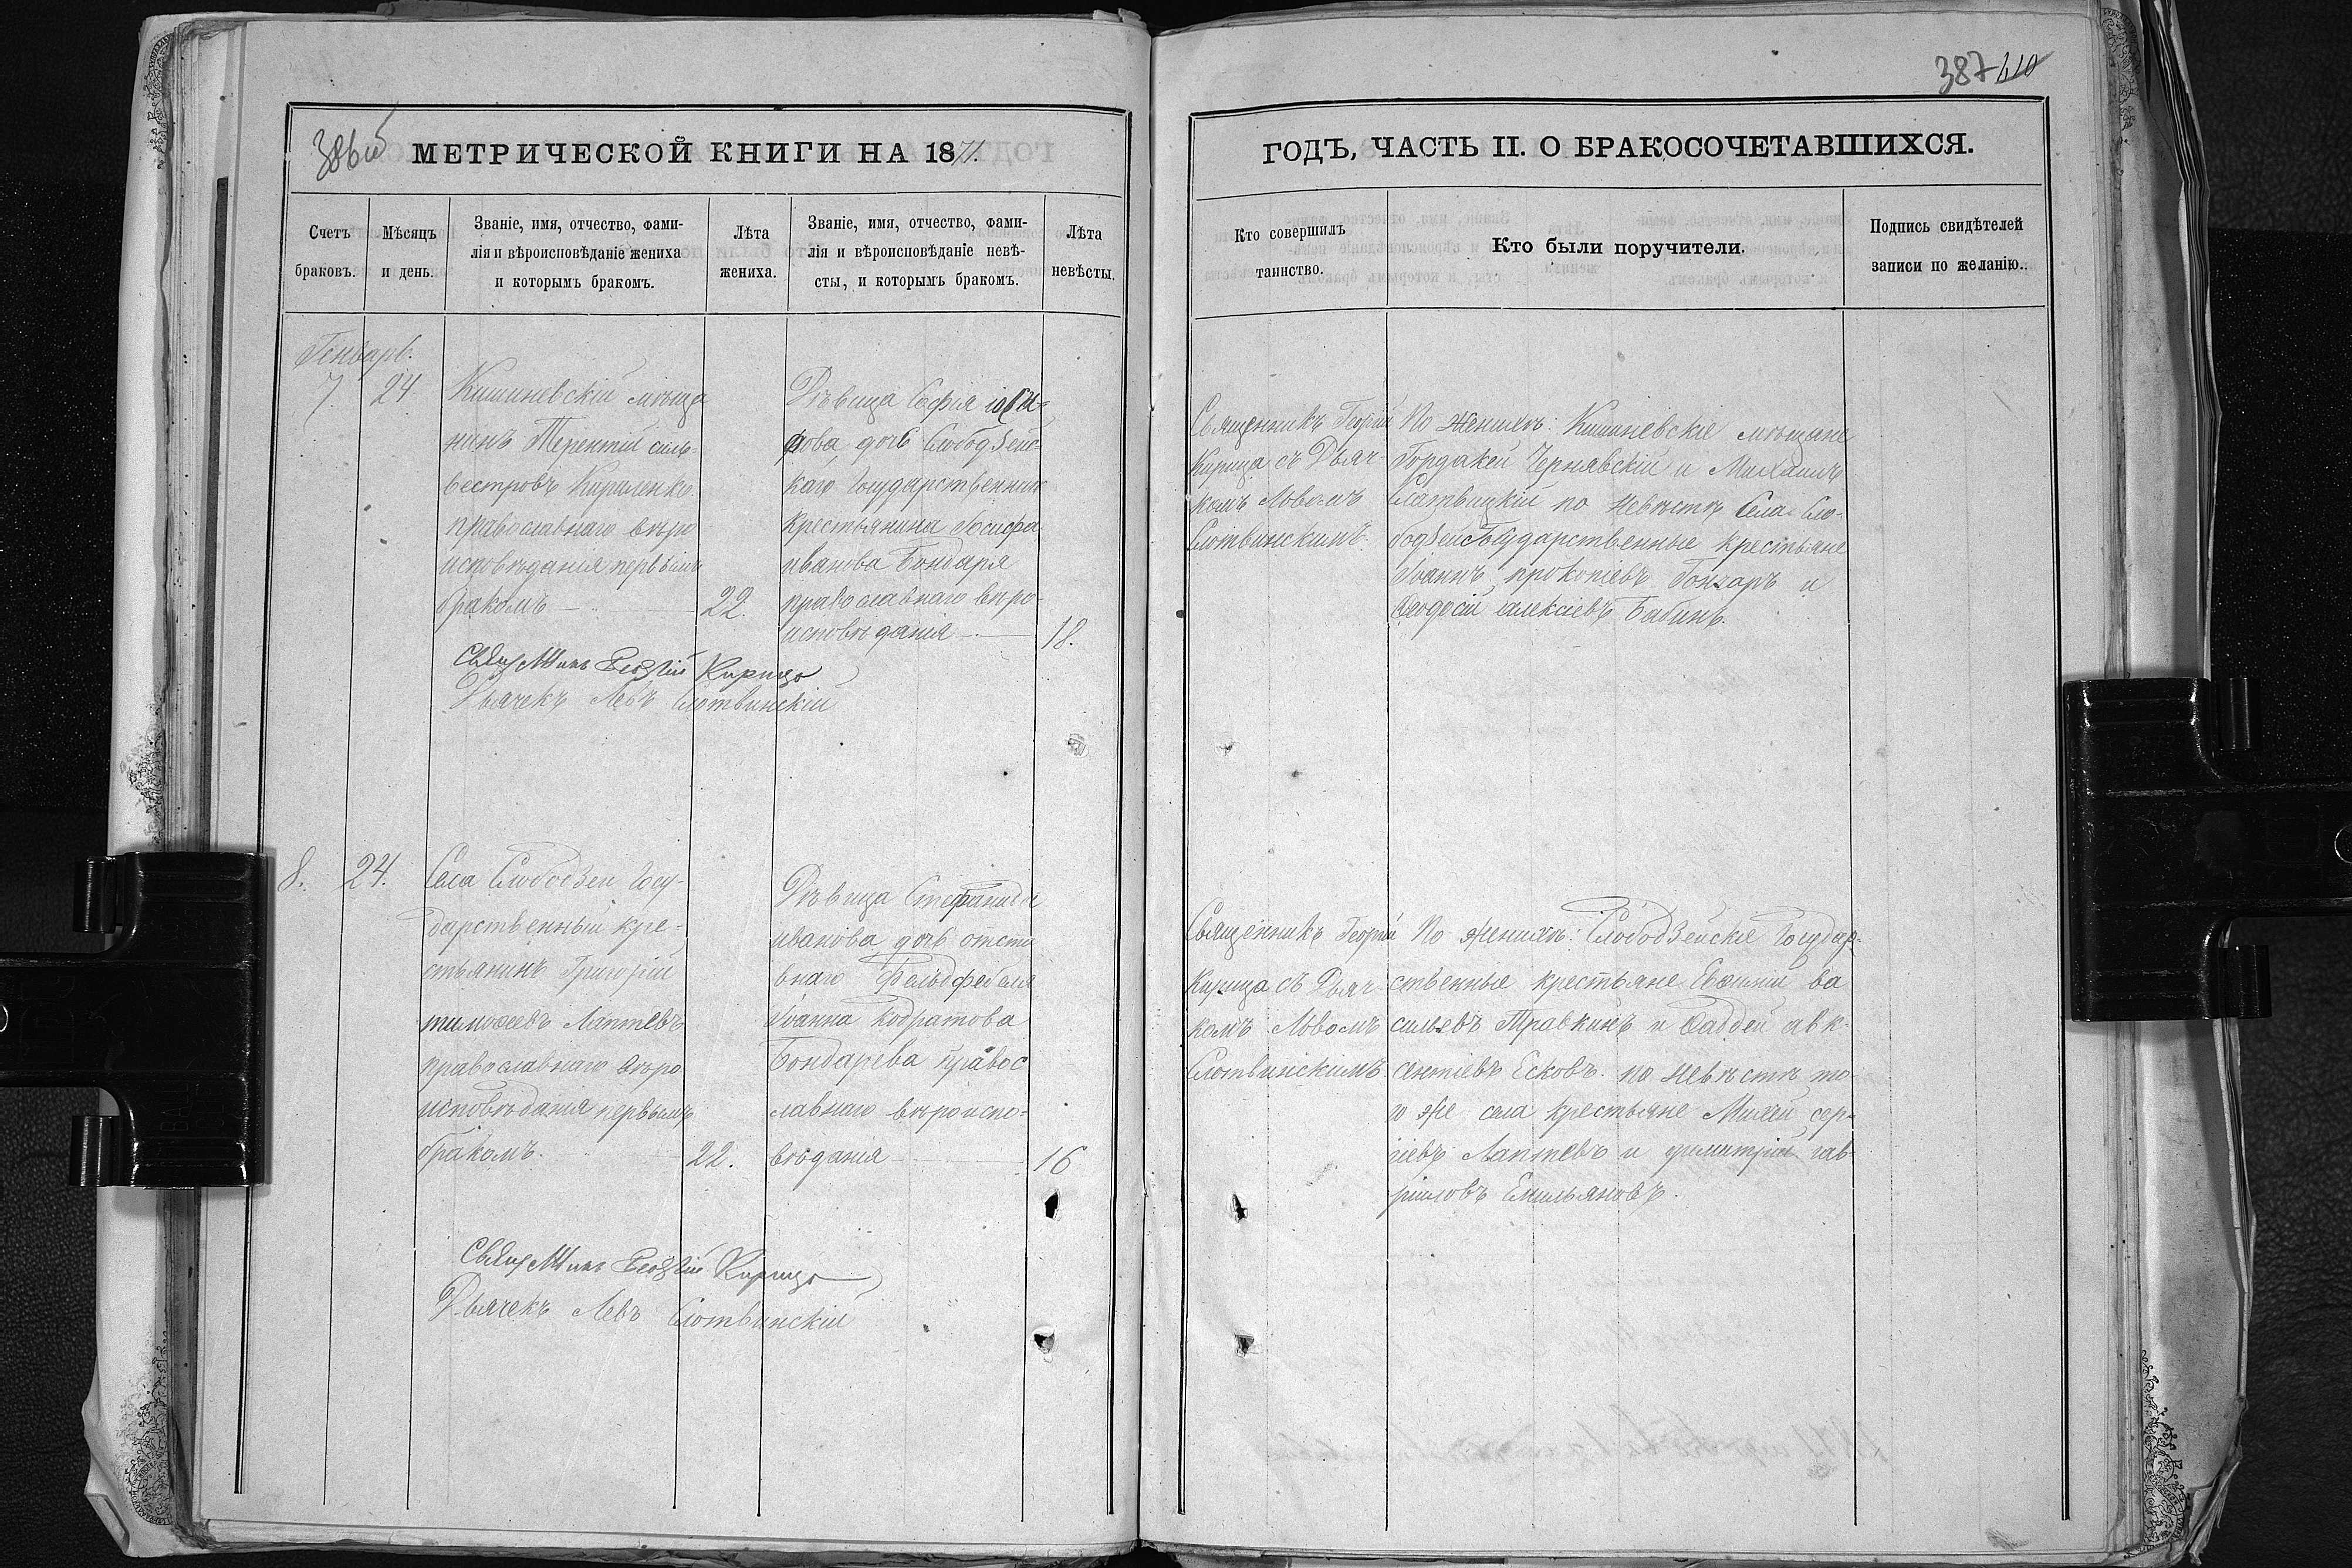 386об
МЕТРИЧЕСКОЙ КНИГИ НА 1871.
Счетъ
браковъ.
Мѣсяцъ
и день.
Званіе, имя, отчество, фами-
лія и вѣроисповѣданіе жениха
и которымъ бракомъ.
Лѣта
жениха.
Званіе, имя, отчество, фами-
лія и вѣроисповѣданіе невѣ-
сты, и которымъ бракомъ.
Лѣта
невѣсты.
Генварь.
7
24
Кишиневскій мѣща
нинъ Терентій силь-
вестровъ Кириленко
православнаго вѣро
исповѣданія первымъ
бракомъ
22.
Дѣвица Софія іоси-
фова дочь Слободзейс-
каго Государственнаго
крестьянина Іосифа
иванова Бондаря
православнаго вѣро-
исповѣданія
18.
Священникъ Георгій Кирица
Дьячекъ Левъ Слотвинскій
8.
24.
Села Слободзеи Госу-
дарственный кре-
стьянинъ Григорій
тимофеевъ Лаптевъ
православнаго вѣро
исповѣданія первымъ
бракомъ.
22.
Дѣвица Стефанида
иванова дочь отста
внаго Фельдфебеля
Іоанна кодратова
Бондарева правос
лавнаго вѣроиспо-
вѣданія
16
Священникъ Георгій Кирица
Дьячекъ Левъ Слотвинскій
387 410
ГОДЪ, ЧАСТЬ II. О БРАКОСОЧЕТАВШИХСЯ.
Кто совершилъ
таинство.
Кто были поручители.
Подпись свидѣтелей
записи по желанію.
Священникъ Георгій
Кирица съ Дьяч-
комъ Львомъ
Слотвинскимъ.
По женихѣ: Кишиневскіе мѣщане
Гордакей Чернявскій и Михаилъ
Слатвицкій по невѣстѣ Села Сло-
бодзеи Государственные крестьяне
Іоаннъ прокопіевъ Гончаръ и
Ѳеодосій алексіевъ Бабинъ.
Священникъ Георгій
Кирица съ Дьяч
комъ Львомъ
Слотвинскимъ
По женихѣ: Слободзейскіе Государ-
ственные крестьяне Евфимій ва
сильевъ Травкинъ и Ѳаддей авк-
сентіевъ Есковъ. по невѣстѣ то-
го же села крестьяне Михей сер-
гіевъ Лаптевъ и димитрій гав-
риловъ Емильяновъ.